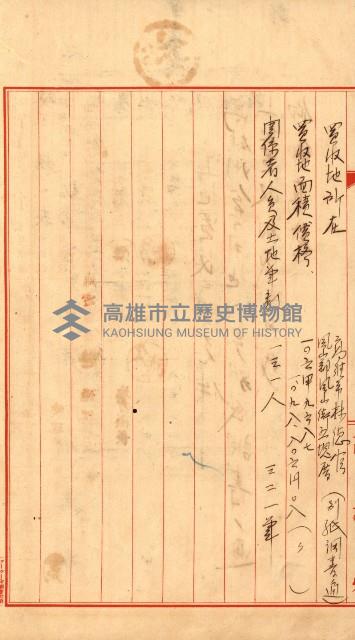 買收地所在
高雄市林德官
鳳山郡鳳山街五塊厝
(別紙調書通)
買收地面積價格、
一〇六甲九六八七
一〇九八、八〇六円〇八(〃)
關係者人員及土地筆數
一三一人 三二一筆
高雄市立歷史博物館
KAOHSIUNG MUSEUM OF HISTORY